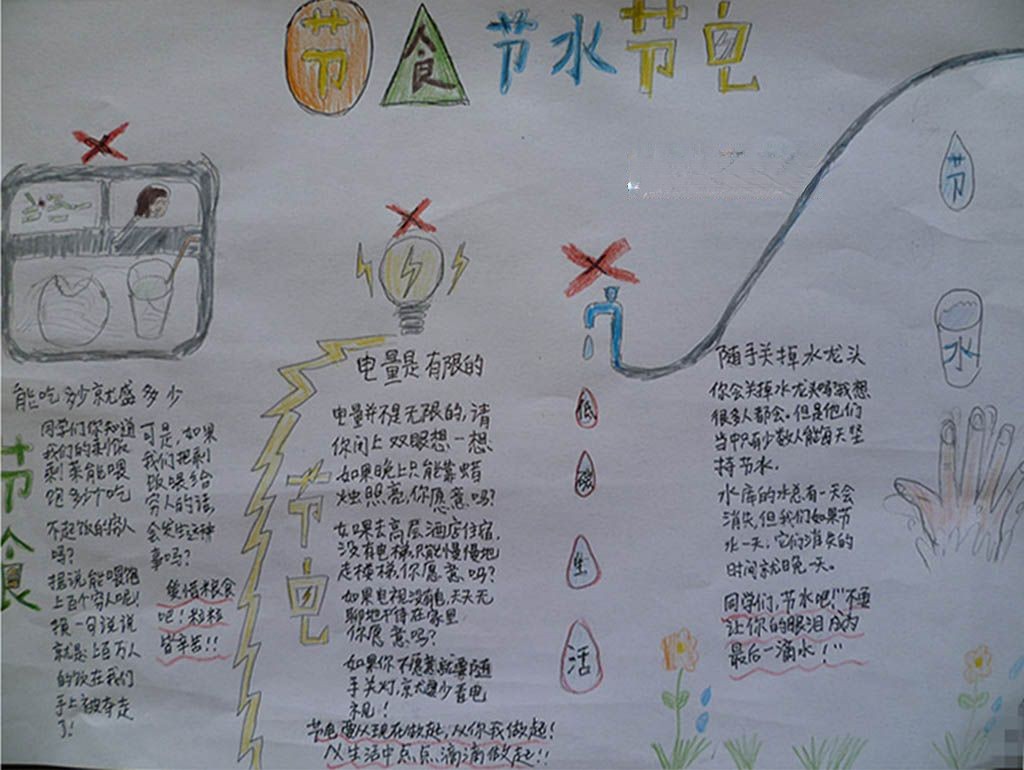 节食节水节电
能吃多少就盛多少
同学们你知道
我们的剩饭
剩菜能喂
饱多少个吃
不起饭的穷人
吗?
据说能喂饱
上百个穷人呢!
换一句说说
就是上百万人
的饭在我们
手上被夺走
了!
可是,如果
我们把剩
饭喂给
穷人的话,
会发生这种
事吗?
爱惜粮食
吧!粒粒
皆辛苦!!
节食
电量是有限的
电量并不是无限的,请
你闭上双眼想一想
如果晚上只能靠蜡
烛照亮,你愿意吗?
如果去高层酒店住宿,
没有电梯只能慢慢地
走楼梯,你愿意吗?
如果电视没有电,天天无
聊地不待在家里
你愿意吗?
如果你不愿意就要随
手关灯,尽量少看电
视!
节电要从现在做起,从你我做起!
从生活中点点滴滴做起!!
节电
低
碳
生
活
随手关掉水龙头
你会关掉水龙头吗我想
很多人都会,但是他们
当中只有少数人能每天坚
持节水。
水库的水总有一天会
消失,但我们如果节
水一天,它们消失的
时间就晚一天。
同学们,节水吧!"不要
让你的眼泪成为
最后一滴水!"
节
水